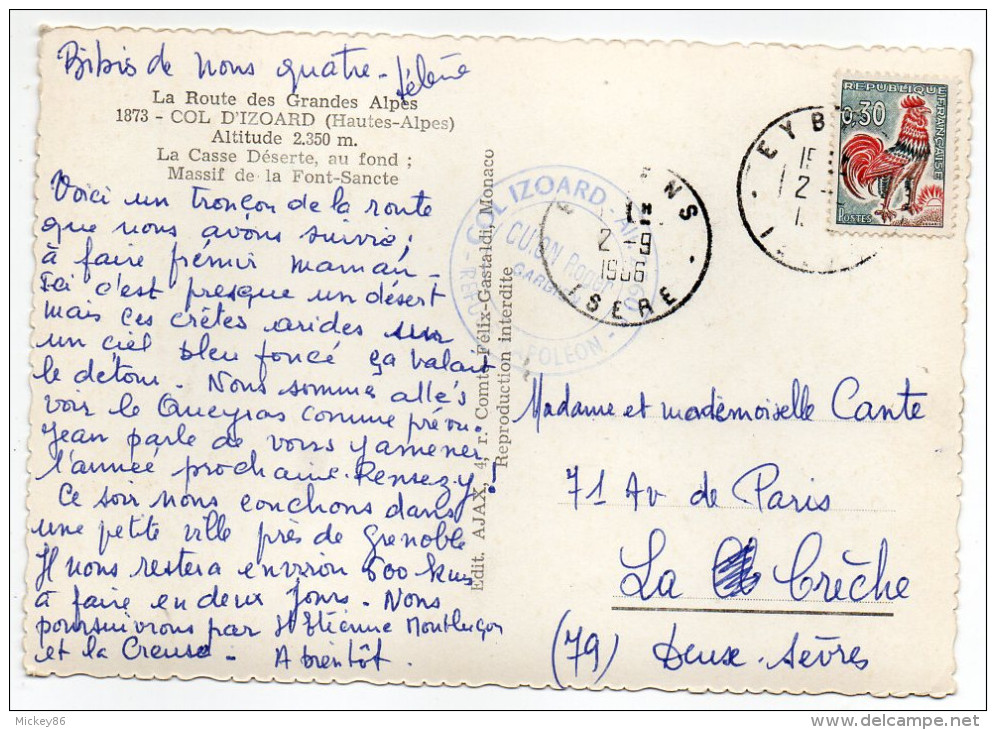 Bibis de nous quatre - Hélène
La Route des Grandes Alpes
1873 - COL D'IZOARD (Hautes-Alpes)
Altitude 2.350 m.
La Casse Déserte, au fond ;
Massif de la Font-Sancte
Voici un tronçon de la route
que nous avons suivie,
à faire frémir maman -
Ici c'est presque un désert
mais ces crêtes arides sur
un ciel bleu foncé ça valait
le détour. Nous sommes allés
voir le Queyras comme prévu.
Jean parle de vous y amener
l'année prochaine. Pensez-y!
Ce soir nous couchons dans
une petite ville près de Grenoble
Il nous restera environ 600 kms
à faire en deux jours. Nous
poursuivrons par St Etienne Montluçon
et la Creuse - A bientôt.
Edit. AJAX, 4, r. Comte-Félix-Gastaldi, Monaco
Reproduction interdite
COL IZOARD
GUION Roger
REFU NAPOLEON
ENS
2-9
1966
ISERE
EYB
REPUBLIQUE FRANÇAISE
0,30
POSTES
Madame et mademoiselle Cante
71 Av de Paris
La Crèche
(79) Deux-Sèvres
Mickey86
delcampe.net